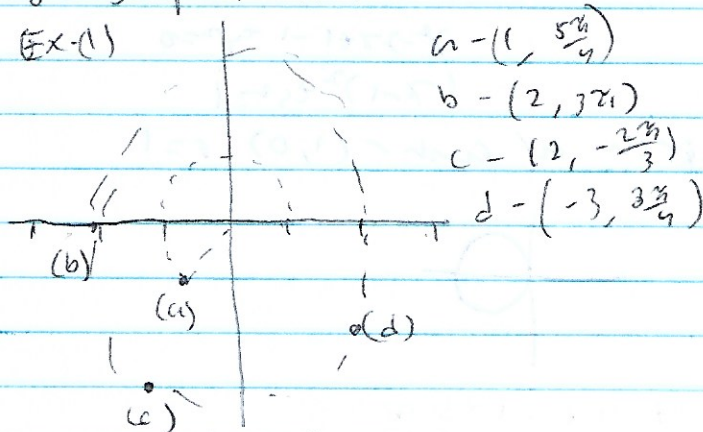 Ex-(1)
a - (1, 5π/4)
b - (2, 3π)
c - (2, -2π/3)
d - (-3, 3π/4)
(b)
(a)
(d)
(c)